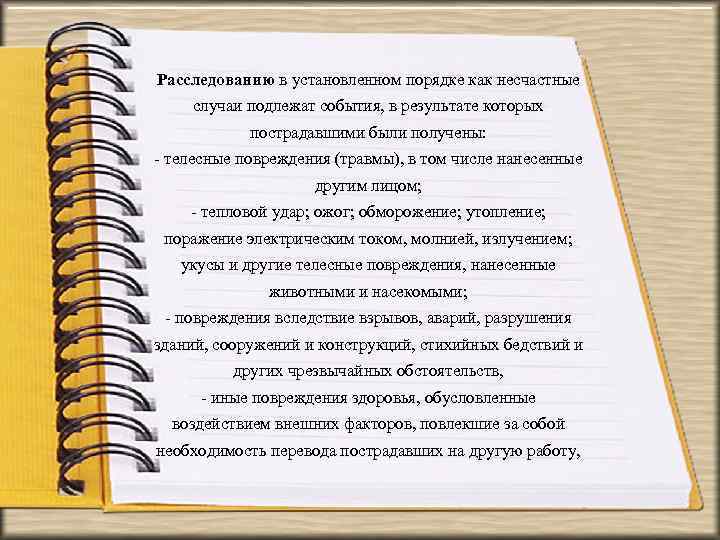 Расследованию в установленном порядке как несчастные
случаи подлежат события, в результате которых
пострадавшими были получены:
- телесные повреждения (травмы), в том числе нанесенные
другим лицом;
- тепловой удар; ожог; обморожение; утопление;
поражение электрическим током, молнией, излучением;
укусы и другие телесные повреждения, нанесенные
животными и насекомыми;
- повреждения вследствие взрывов, аварий, разрушения
зданий, сооружений и конструкций, стихийных бедствий и
других чрезвычайных обстоятельств,
- иные повреждения здоровья, обусловленные
воздействием внешних факторов, повлекшие за собой
необходимость перевода пострадавших на другую работу,